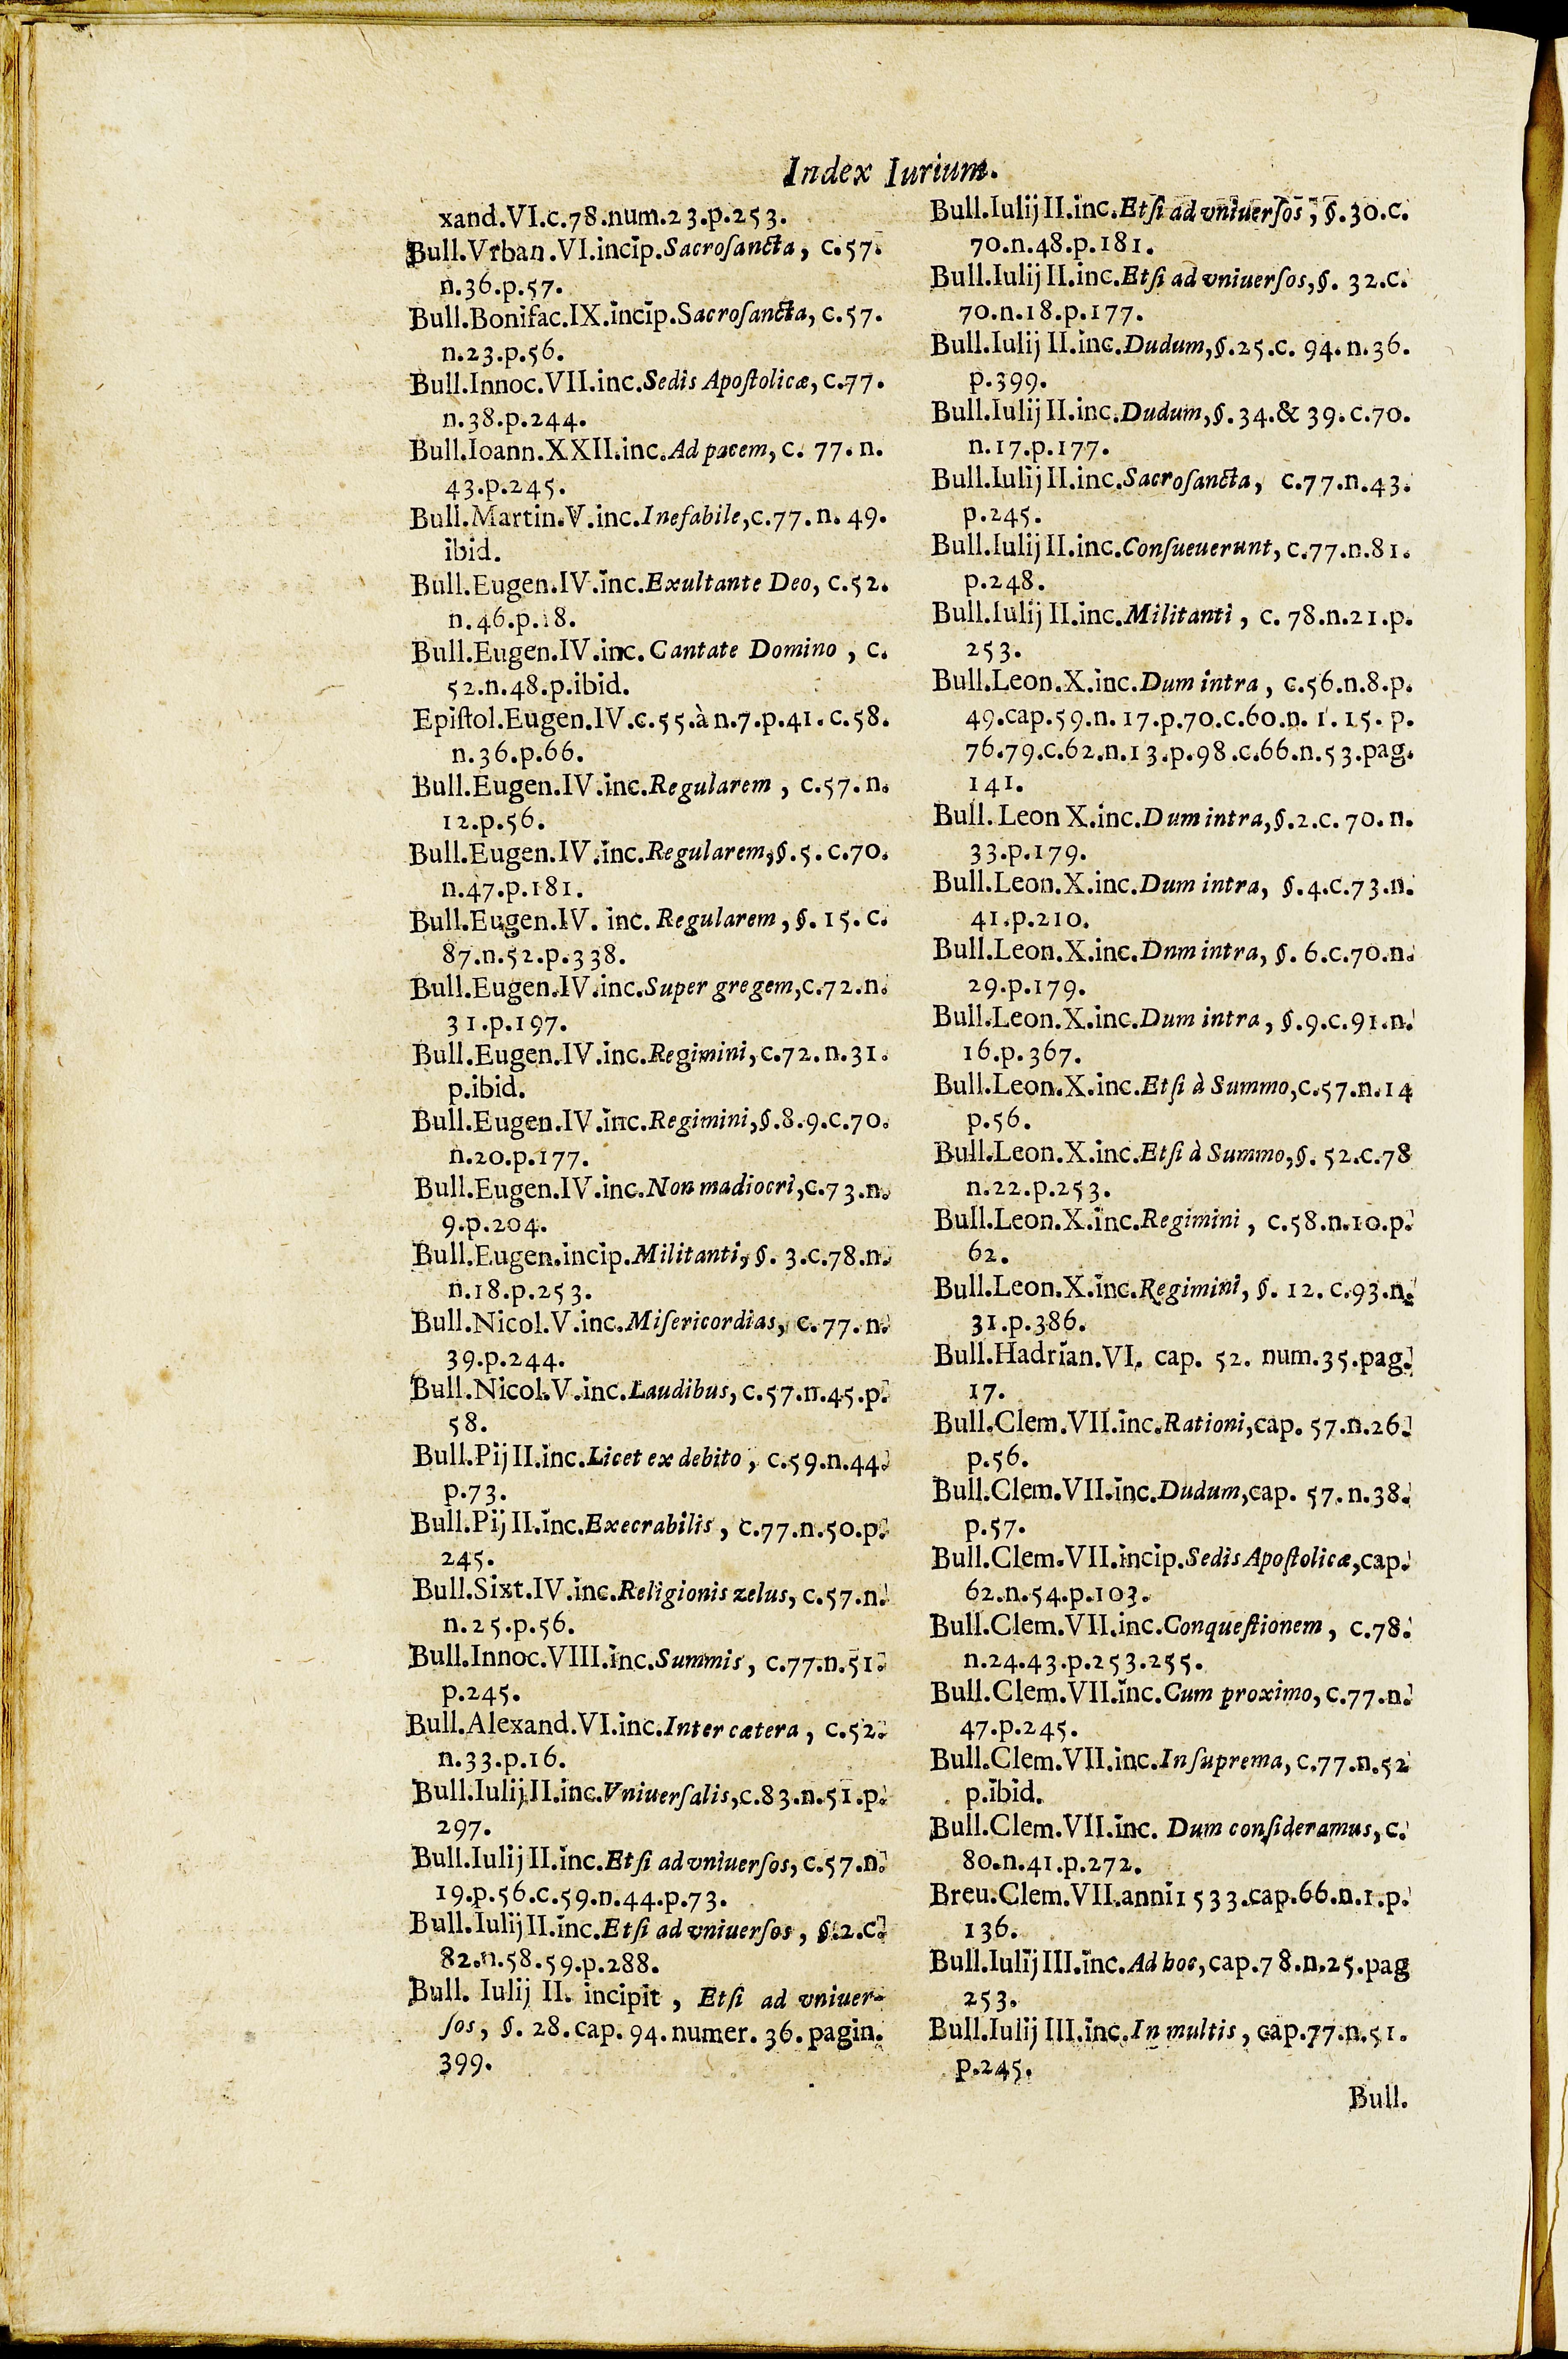 Index Iurium.
xand.VI.c.78.num.23.p.253.
Bull.Vrban.VI.incip.Sacroſancta, c.57.
n.36.p.57.
Bull.Bonifac.IX.incip.Sacroſancta, c.57.
n.23.p.56.
Bull.Innoc.VII.inc.Sedis Apoſtolicæ, c.77.
n.38.p.244.
Bull.Ioann.XXII.inc.Ad pacem, c. 77. n.
43.p.245.
Bull.Martin.V.inc.Inefabile,c.77. n. 49.
ibid.
Bull.Eugen.IV.inc.Exultante Deo, c.52.
n.46.p.18.
Bull.Eugen.IV.inc. Cantate Domino , c.
52.n.48.p.ibid.
Epiſtol.Eugen.IV.c.55.à n.7.p.41. c.58.
n.36.p.66.
Bull.Eugen.IV.inc.Regularem , c.57. n.
12.p.56.
Bull.Eugen.IV.inc.Regularem,§.5. c.70.
n.47.p.181.
Bull.Eugen.IV. inc. Regularem , §. 15. c.
87.n.52.p.338.
Bull.Eugen.IV.inc.Super gregem,c.72.n.
31.p.197.
Bull.Eugen.IV.inc.Regimini,c.72. n.31.
p.ibid.
Bull.Eugen.IV.inc.Regimini,§.8.9.c.70.
n.20.p.177.
Bull.Eugen.IV.inc.Non madiocri,c.73.n.
9.p.204.
Bull.Eugen.incip.Militanti, §. 3.c.78.n.
n.18.p.253.
Bull.Nicol.V.inc.Miſericordias, c.77. n.
39.p.244.
Bull.Nicol.V.inc.Laudibus, c.57.n.45.p.
58.
Bull.Pij II.inc.Licet ex debito , c.59.n.44.
p.73.
Bull.Pij II.inc.Execrabilis , c.77.n.50.p.
245.
Bull.Sixt.IV.inc.Religionis zelus, c.57.n.
n.25.p.56.
Bull.Innoc.VIII.inc.Summis, c.77.n.51.
p.245.
Bull.Alexand.VI.inc.Inter cætera , c.52.
n.33.p.16.
Bull.Iulij.II.inc.Vniuerſalis,c.83.n.51.p.
297.
Bull.Iulij II.inc.Etſi ad vniuerſos, c.57.n.
19.p.56.c.59.n.44.p.73.
Bull.Iulij II.inc.Etſi ad vniuerſos , §.2.c.
82.n.58.59.p.288.
Bull. Iulij II. incipit , Etſi ad vniuer-
ſos, §. 28. cap. 94. numer. 36. pagin.
399.
Bull.Iulij II.inc.Etſi ad vniuerſos , §.30.c.
70.n.48.p.181.
Bull.Iulij II.inc.Etſi ad vniuerſos,§. 32.c.
70.n.18.p.177.
Bull.Iulij II.inc.Dudum,§.25.c. 94. n.36.
p.399.
Bull.Iulij II.inc.Dudum,§.34.& 39.c.70.
n.17.p.177.
Bull.Iulij II.inc.Sacroſancta, c.77.n.43.
p.245.
Bull.Iulij II.inc.Conſueuerunt, c.77.n.81.
p.248.
Bull.Iulij II.inc.Militanti , c. 78.n.21.p.
253.
Bull.Leon.X.inc.Dum intra , c.56.n.8.p.
49.cap.59.n. 17.p.70.c.60.n. 1. 15. p.
76.79.c.62.n.13.p.98.c.66.n.53.pag.
141.
Bull. Leon X.inc.Dum intra,§.2.c. 70. n.
33.p.179.
Bull.Leon.X.inc.Dum intra, §.4.c.73.n.
41.p.210.
Bull.Leon.X.inc.Dnm intra, §. 6.c.70.n.
29.p.179.
Bull.Leon.X.inc.Dum intra , §.9.c.91.n.
16.p.367.
Bull.Leon.X.inc.Etſi à Summo,c.57.n.14
p.56.
Bull.Leon.X.inc.Etſi à Summo,§. 52.c.78
n.22.p.253.
Bull.Leon.X.inc.Regimini , c.58.n.10.p.
62.
Bull.Leon.X.inc.Regimini, §. 12. c.93.n.
31.p.386.
Bull.Hadrian.VI. cap. 52. num.35.pag.
17.
Bull.Clem.VII.inc.Rationi,cap. 57.n.26.
p.56.
Bull.Clem.VII.inc.Dudum,cap. 57. n.38.
p.57.
Bull.Clem.VII.incip.Sedis Apoſtolicæ,cap.
62.n.54.p.103.
Bull.Clem.VII.inc.Conqueſtionem , c.78.
n.24.43.p.253.255.
Bull.Clem.VII.inc.Cum proximo, c.77.n.
47.p.245.
Bull.Clem.VII.inc.In ſuprema, c.77.n.52
p.ibid.
Bull.Clem.VII.inc. Dum conſideramus, c.
80.n.41.p.272.
Breu.Clem.VII.anni 1533.cap.66.n.1.p.
136.
Bull.Iulij III.inc.Ad hoc, cap.78.n.25.pag
253.
Bull.Iulij III.inc.In multis , cap.77.n.51.
p.245.
Bull.